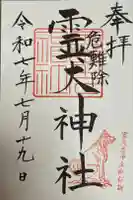 奉拝
危難除
霊犬神社
令和七年七月十九日